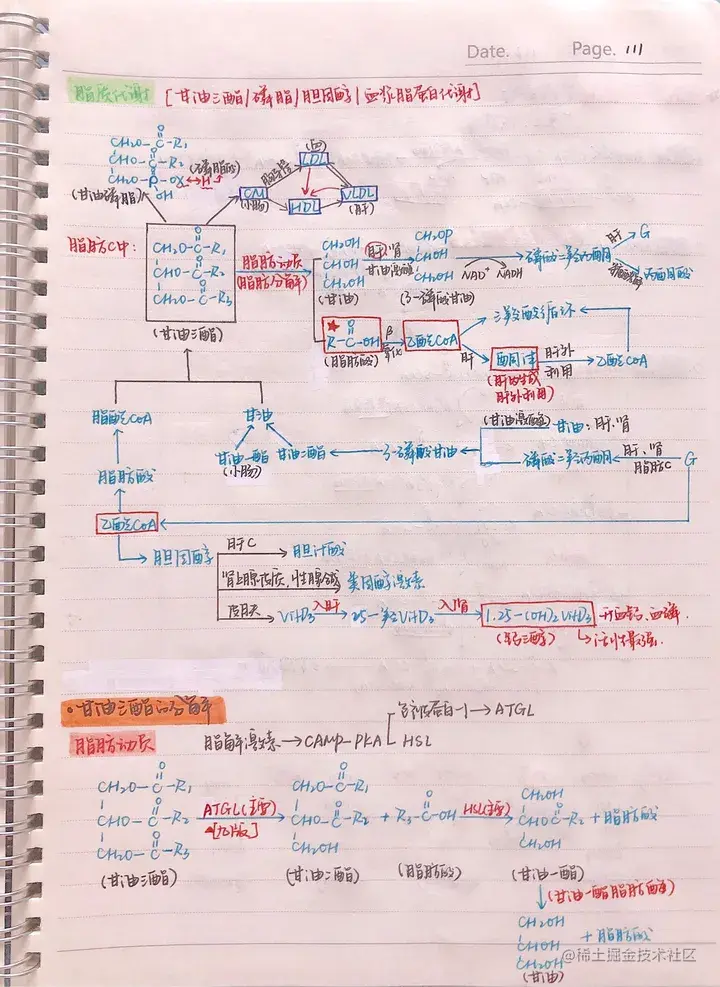 Date. Page. 111
脂质代谢 [甘油三酯/磷脂/胆固醇/血浆脂蛋白代谢]
CH₂O-C-R₁
CHO-C-R₂ (磷脂酸)
CH₂O-P-OX↔H
OH
(甘油磷脂)
(血) LDL
CM (小肠)
HDL
VLDL (肝)
脂肪C中:
CH₂O-C-R₁
CHO-C-R₂
CH₂O-C-R₃
(甘油三酯)
脂肪动员
(脂肪分解)
CH₂OH
CHOH
CH₂OH
(甘油)
肝.肾
甘油激酶
CH₂OP
CHOH
CH₂OH
(3-磷酸甘油)
NAD⁺ NADH
磷酸二羟丙酮
肝 G
丙酮酸
★ O
R-C-OH
(脂肪酸)
β
氧化
乙酰CoA
三羧酸循环
肝
酮体
(肝内生成
肝外利用)
肝外
利用
乙酰CoA
脂酰CoA
甘油
甘油一酯
(小肠)
甘油二酯
3-磷酸甘油
(甘油激酶)
甘油:肝.肾
磷酸二羟丙酮
肝、肾
脂肪C
G
脂肪酸
乙酰CoA
胆固醇
肝C 胆汁酸
肾上腺皮质,性腺 类固醇激素
皮肤 VitD₃ 入肝 25-羟VitD₃ 入肾 1.25-(OH)₂VitD₃ 升血钙、血磷.
(钙三醇) 活性最强.
•甘油三酯的分解
脂肪动员 脂解激素→cAMP-PKA
脂滴包被蛋白-1→ATGL
HSL
CH₂O-C-R₁
CHO-C-R₂
CH₂O-C-R₃
(甘油三酯)
ATGL(主要)
[九版]
CH₂O-C-R₁
CHO-C-R₂
CH₂OH
(甘油二酯)
+ R₃-C-OH
(脂肪酸)
HSL(主要)
CH₂OH
CHOC-R₂ +脂肪酸
CH₂OH
(甘油一酯)
(甘油一酯脂肪酶)
CH₂OH
CHOH +脂肪酸
CH₂OH
(甘油)
@稀土掘金技术社区